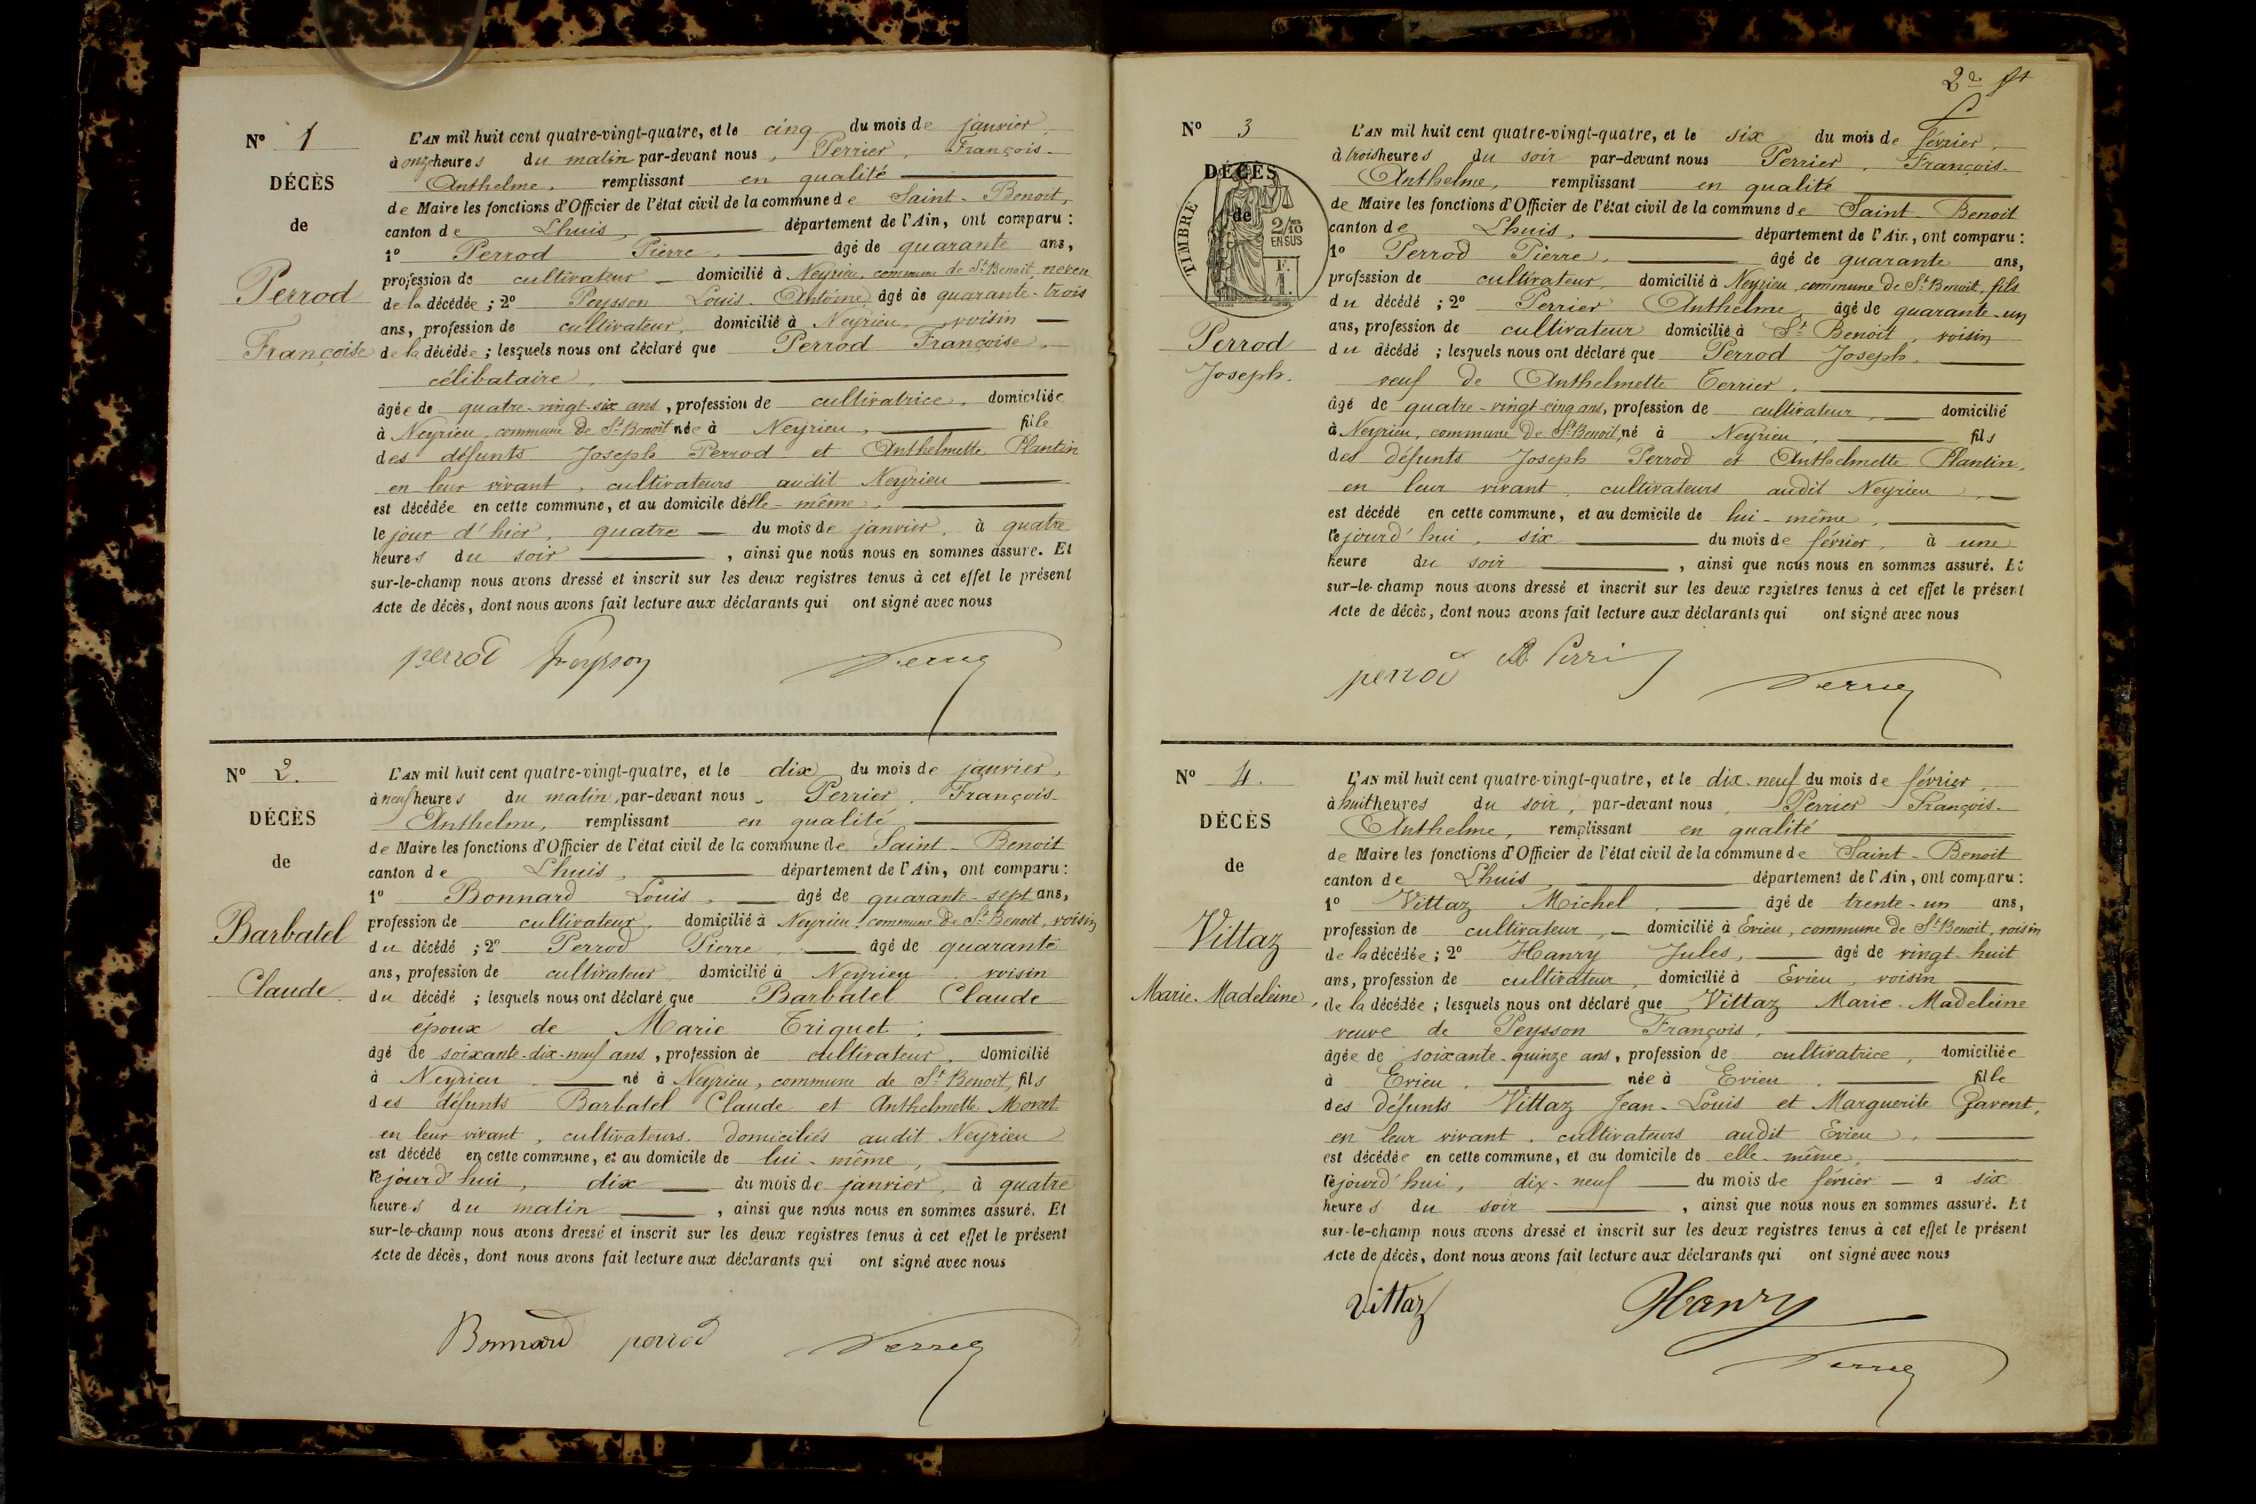 N° 1
DÉCÈS
de
Perrod
Françoise
L'AN mil huit cent quatre-vingt-quatre, et le cinq du mois de janvier,
à onze heures du matin par-devant nous, Perrier, François-
Anthelme, remplissant en qualité
de Maire les fonctions d'Officier de l'état civil de la commune de Saint-Benoit,
canton de Lhuis, département de l'Ain, ont comparu :
1° Perrod Pierre, âgé de quarante ans,
profession de cultivateur domicilié à Neyrieu, commune de St Benoit, neveu
de la décédée ; 2° Peysson Louis-Antoine, âgé de quarante-trois
ans, profession de cultivateur, domicilié à Neyrieu, voisin
de la décédée ; lesquels nous ont déclaré que Perrod Françoise,
célibataire,
âgée de quatre-vingt-six ans, profession de cultivatrice, domiciliée
à Neyrieu, commune de St Benoit née à Neyrieu, fille
des défunts Joseph Perrod et Anthelmette Plantin
en leur vivant, cultivateurs audit Neyrieu
est décédée en cette commune, et au domicile d'elle-même,
le jour d'hier, quatre du mois de janvier, à quatre
heures du soir, ainsi que nous nous en sommes assuré. Et
sur-le-champ nous avons dressé et inscrit sur les deux registres tenus à cet effet le présent
Acte de décès, dont nous avons fait lecture aux déclarants qui ont signé avec nous
perrod Peysson Perrier
N° 2.
DÉCÈS
de
Barbatel
Claude
L'AN mil huit cent quatre-vingt-quatre, et le dix du mois de janvier,
à neuf heures du matin, par-devant nous, Perrier, François-
Anthelme, remplissant en qualité
de Maire les fonctions d'Officier de l'état civil de la commune de Saint-Benoit
canton de Lhuis, département de l'Ain, ont comparu :
1° Bonnard Louis, âgé de quarante-sept ans,
profession de cultivateur, domicilié à Neyrieu, commune de St Benoit, voisin
du décédé ; 2° Perrod Pierre, âgé de quarante
ans, profession de cultivateur domicilié à Neyrieu, voisin
du décédé ; lesquels nous ont déclaré que Barbatel Claude
époux de Marie Triquet,
âgé de soixante-dix-neuf ans, profession de cultivateur, domicilié
à Neyrieu né à Neyrieu, commune de St Benoit, fils
des défunts Barbatel Claude et Anthelmette Morat
en leur vivant, cultivateurs domiciliés audit Neyrieu
est décédé en cette commune, et au domicile de lui-même,
cejourd'hui, dix du mois de janvier, à quatre
heures du matin, ainsi que nous nous en sommes assuré. Et
sur-le-champ nous avons dressé et inscrit sur les deux registres tenus à cet effet le présent
Acte de décès, dont nous avons fait lecture aux déclarants qui ont signé avec nous
Bonnard perrod Perrier
2e ft
N° 3
DÉCÈS
de
TIMBRE
2/10 EN SUS
F. 1.
Perrod
Joseph.
L'AN mil huit cent quatre-vingt-quatre, et le six du mois de février,
à trois heures du soir par-devant nous Perrier, François-
Anthelme, remplissant en qualité
de Maire les fonctions d'Officier de l'état civil de la commune de Saint-Benoit
canton de Lhuis, département de l'Ain, ont comparu :
1° Perrod Pierre, âgé de quarante ans,
profession de cultivateur, domicilié à Neyrieu, commune de St Benoit, fils
du décédé ; 2° Perrier Anthelme, âgé de quarante-un
ans, profession de cultivateur domicilié à St Benoit, voisin
du décédé ; lesquels nous ont déclaré que Perrod Joseph,
veuf de Anthelmette Terrier,
âgé de quatre-vingt cinq ans, profession de cultivateur, domicilié
à Neyrieu, commune de St Benoit, né à Neyrieu, fils
des défunts Joseph Perrod et Anthelmette Plantin,
en leur vivant, cultivateurs audit Neyrieu,
est décédé en cette commune, et au domicile de lui-même,
cejourd'hui, six du mois de février, à une
heure du soir, ainsi que nous nous en sommes assuré. Et
sur-le-champ nous avons dressé et inscrit sur les deux registres tenus à cet effet le présent
Acte de décès, dont nous avons fait lecture aux déclarants qui ont signé avec nous
perrod Perrier
N° 4.
DÉCÈS
de
Vittaz
Marie-Madeleine,
L'AN mil huit cent quatre-vingt-quatre, et le dix-neuf du mois de février,
à huit heures du soir, par-devant nous, Perrier François-
Anthelme, remplissant en qualité
de Maire les fonctions d'Officier de l'état civil de la commune de Saint-Benoit
canton de Lhuis, département de l'Ain, ont comparu :
1° Vittaz Michel, âgé de trente-un ans,
profession de cultivateur, domicilié à Evieu, commune de St Benoit, voisin
de la décédée ; 2° Hanry Jules, âgé de vingt-huit
ans, profession de cultivateur, domicilié à Evieu, voisin
de la décédée ; lesquels nous ont déclaré que Vittaz Marie-Madeleine
veuve de Peysson François,
âgée de soixante-quinze ans, profession de cultivatrice, domiciliée
à Evieu, née à Evieu, fille
des défunts Vittaz Jean-Louis et Marguerite
en leur vivant, cultivateurs audit Evieu,
est décédée en cette commune, et au domicile de elle-même,
cejourd'hui, dix-neuf du mois de février à six
heures du soir, ainsi que nous nous en sommes assuré. Et
sur-le-champ nous avons dressé et inscrit sur les deux registres tenus à cet effet le présent
Acte de décès, dont nous avons fait lecture aux déclarants qui ont signé avec nous
Vittaz Hanry
Perrier